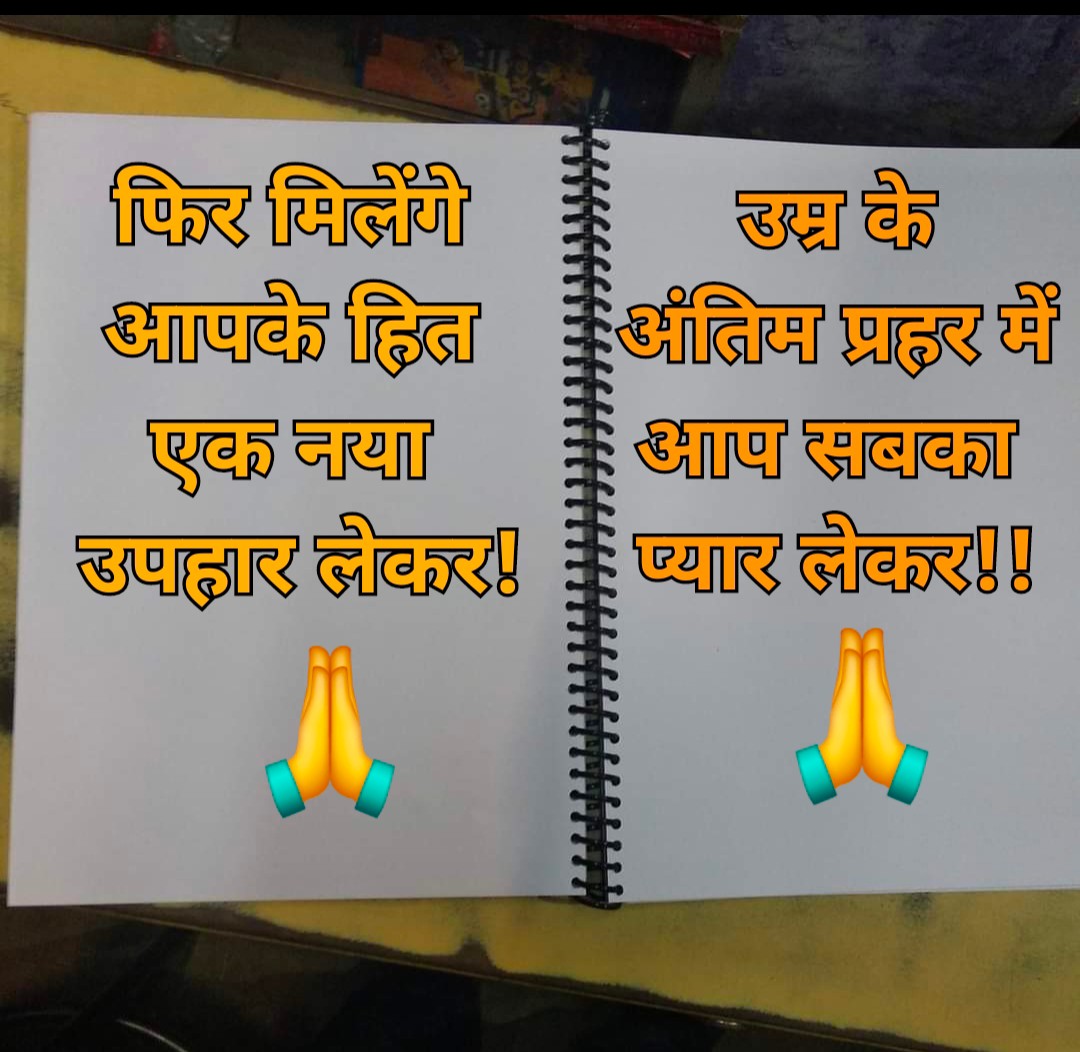 फिर मिलेंगे
आपके हित
एक नया
उपहार लेकर!
उम्र के
अंतिम प्रहर में
आप सबका
प्यार लेकर!!